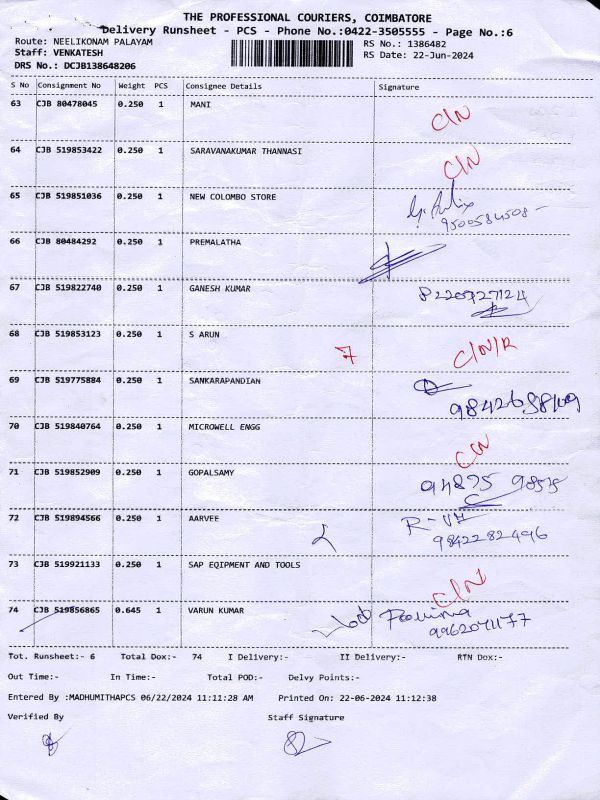 THE PROFESSIONAL COURIERS, COIMBATORE
Delivery Runsheet - PCS - Phone No.:0422-3505555 - Page No.:6
Route: NEELIKONAM PALAYAM RS No.: 1386482
Staff: VENKATESH RS Date: 22-Jun-2024
DRS No.: DCJB138648206
S No Consignment No Weight PCS Consignee Details Signature
63 CJB 80478045 0.250 1 MANI C/N
64 CJB 519853422 0.250 1 SARAVANAKUMAR THANNASI C/N
65 CJB 519851036 0.250 1 NEW COLOMBO STORE
9500584508-
66 CJB 80484292 0.250 1 PREMALATHA
67 CJB 519822740 0.250 1 GANESH KUMAR 8220727124
68 CJB 519853123 0.250 1 S ARUN 7 C/N/R
69 CJB 519775884 0.250 1 SANKARAPANDIAN
70 CJB 519840764 0.250 1 MICROWELL ENGG C/N
71 CJB 519852909 0.250 1 GOPALSAMY 94875 98575
72 CJB 519894566 0.250 1 AARVEE
9842282496
73 CJB 519921133 0.250 1 SAP EQIPMENT AND TOOLS C/N
74 CJB 519856865 0.645 1 VARUN KUMAR
9962071177
Tot. Runsheet:- 6 Total Dox:- 74 I Delivery:- II Delivery:- RTN Dox:-
Out Time:- In Time:- Total POD:- Delvy Points:-
Entered By :MADHUMITHAPCS 06/22/2024 11:11:28 AM Printed On: 22-06-2024 11:12:38
Verified By Staff Signature